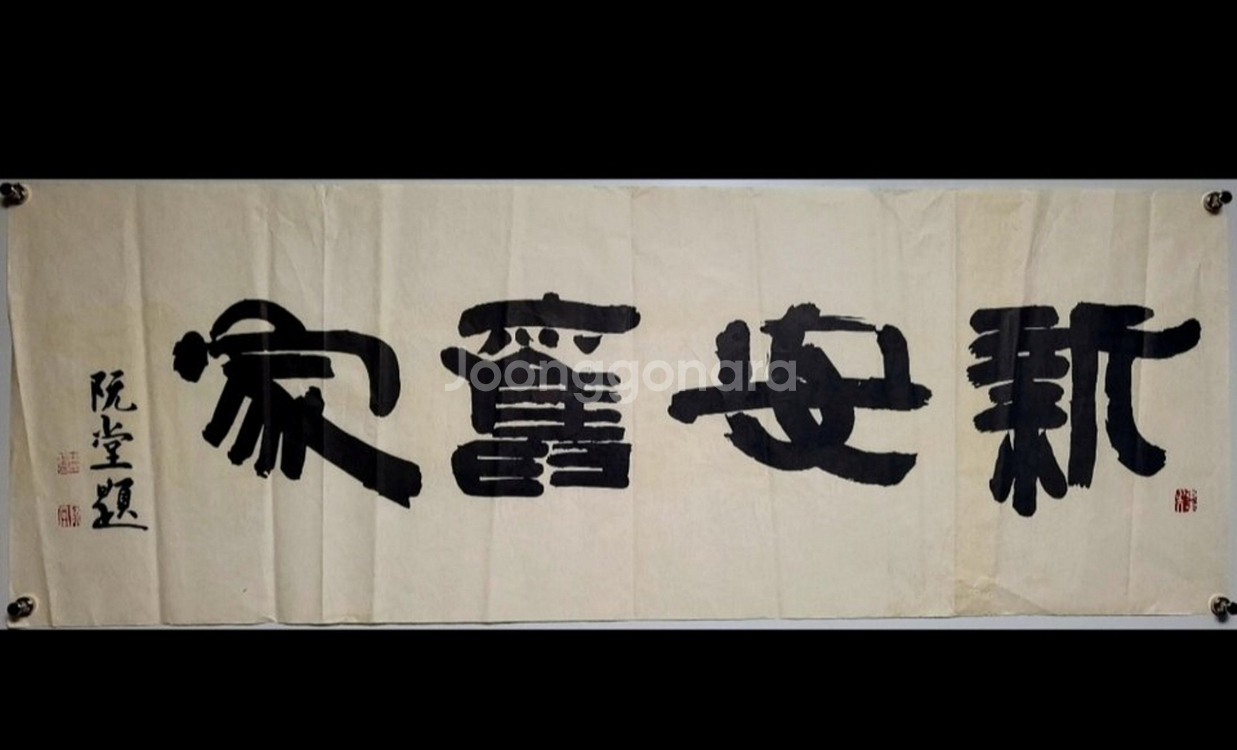 新安舊家
阮堂題
Joonggonara